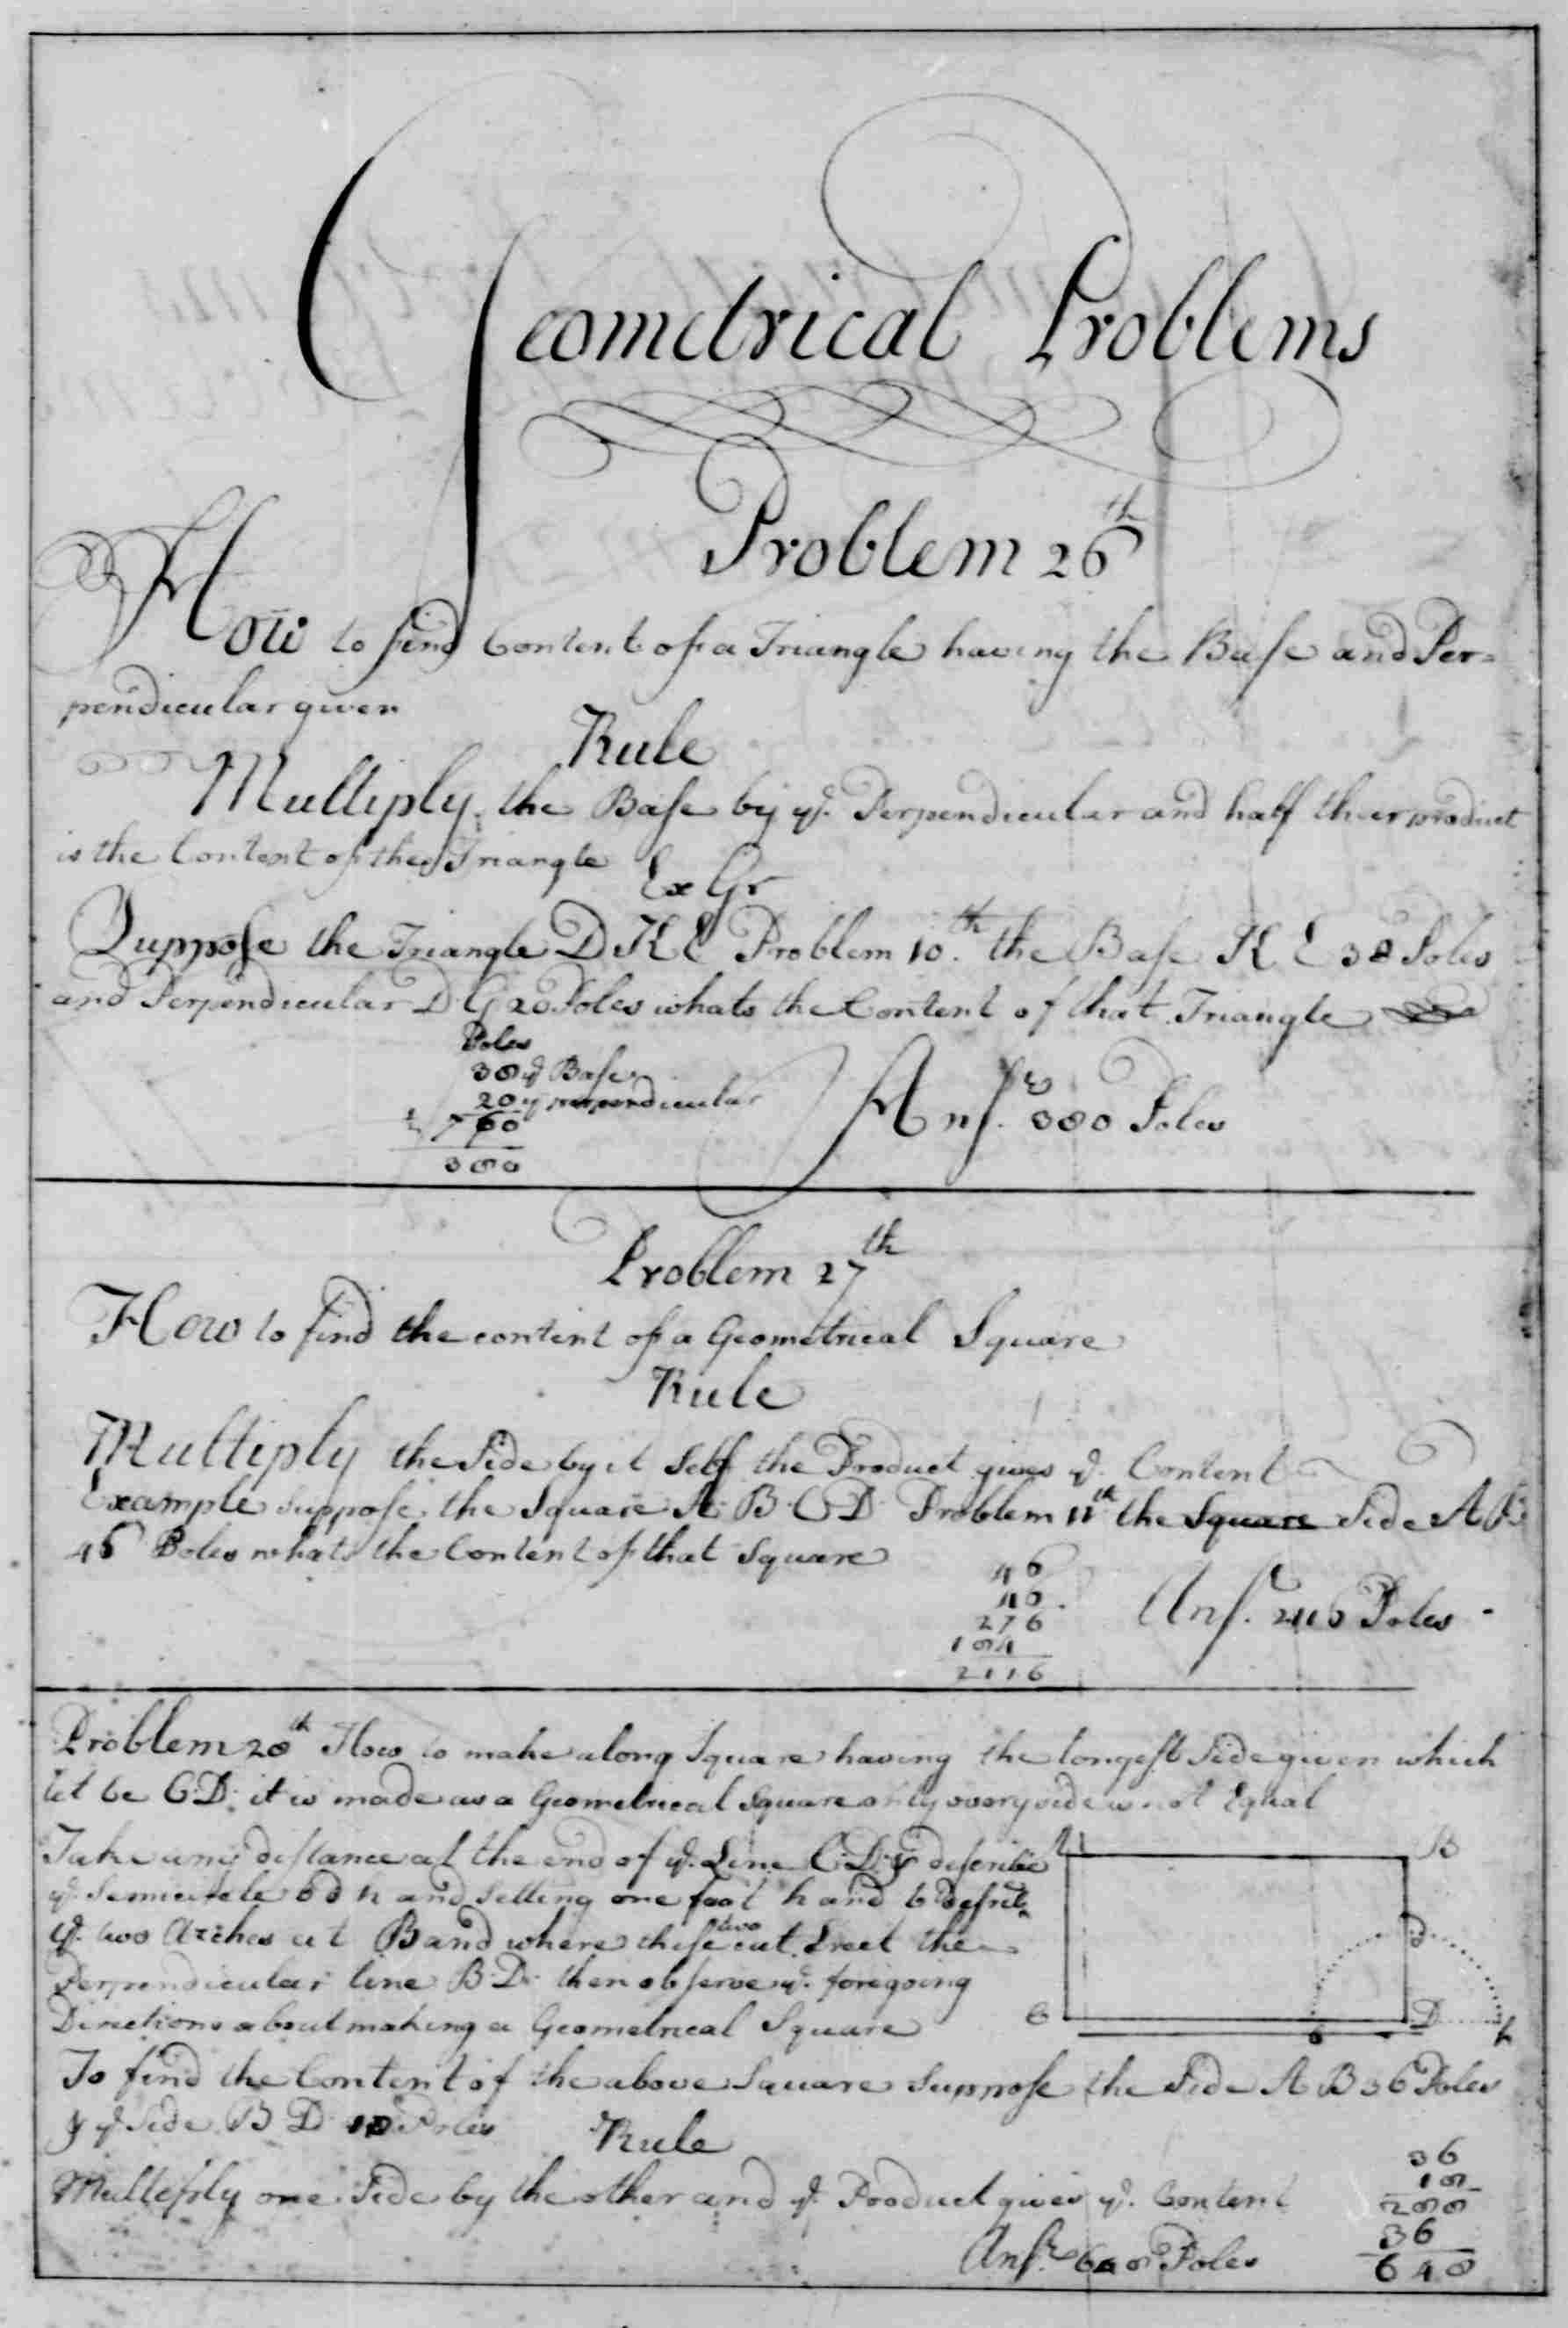 Geometrical Problems
Problem 26th
How to find Content of a Triangle having the Base and Per=
pendicular given
Rule
Multiply the Base by ye. Perpendicular and half thier product
is the Content of the Triangle
Ex Gr
Suppose the Triangle D K E Problem 10.th the Base K E 38 Poles
and Perpendicular D G 20 Poles whats the Content of that Triangle
Poles
38 ye Base
20 ye perpendicular
½ 760
380
Ansr. 380 Poles
Problem 27th
How to find the content of a Geometrical Square
Rule
Multiply the Side by it Self the Product gives ye. Content
Example suppose the Square A. B. C D Problem 11th the Square Side A B
46 Poles whats the Content of that Square
46
46
276
184
2116
Ansr. 2116 Poles
Problem 28th How to make a long Square having the longest Side given which
let be C:D: it is made as a Geometrical Square only every side is not Equal
Take any distance at the end of ye. Line C:D: & describe
ye. Semicircle b d h and Setting one foot h and b
ye. two Arches at B and where these two cut Erect the
Perpendicular line B:D: then observe ye. foregoing
Directions about making a Geometrical Square
A B
d
C b D h
To find the Content of the above Square suppose the Side A B 36 Poles
& ye Side B D 18 Poles Rule
Multeply one Side by the other and ye. Product gives ye. Content
36
18
288
36
648
Ansr. 648 Poles